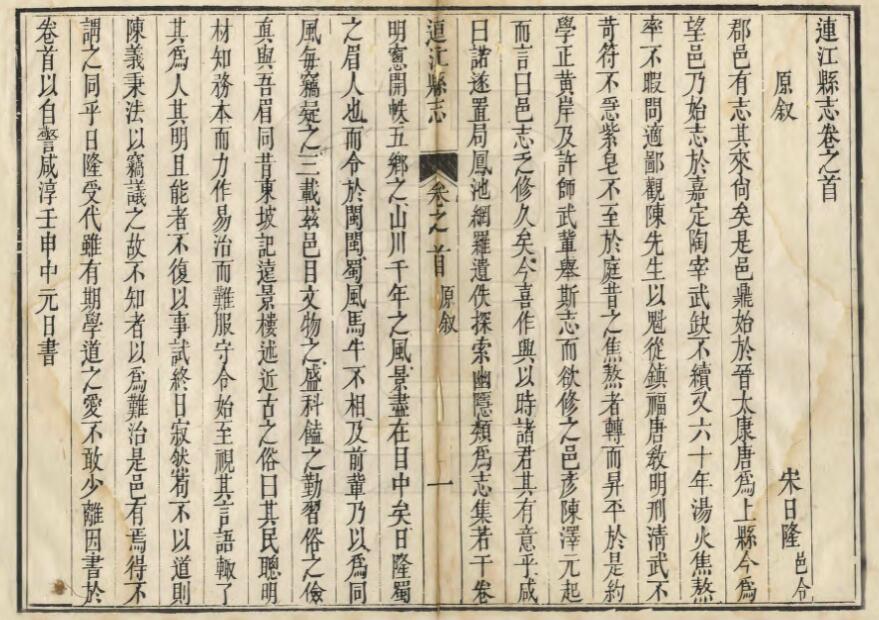 連江縣志卷之首
原叙
宋日隆邑令
郡邑有志其來尙矣是邑鼎始於晉太康唐爲上縣今爲
望邑乃始志於嘉定陶宰武缺不續又六十年湯火焦熬
率不暇問適鄙觀陳先生以魁從鎮福唐敎明刑淸武不
苛符不急紫皂不至於庭昔之焦熬者轉而昇平於是約
學正黄岸及許師武軰舉斯志而欲修之邑彥陳澤元起
而言曰邑志乏修久矣今喜作興以時諸君其有意乎咸
曰諾遂置局鳳池網羅遺佚探索幽隱類爲志集若干卷
連江縣志
卷之首
原叙
一
明窻開帙五鄉之山川千年之風景盡在目中矣日隆蜀
之眉人也而令於閩閩蜀風馬牛不相及前軰乃以爲同
風每竊疑之三載茲邑目文物之盛科鎑之勤習俗之儉
真與吾眉同昔東坡記遠景樓述近古之俗曰其民聰明
材知務本而力作易治而難服守令始至視其言語輙了
其爲人其明且能者不復以事試終日寂然苟不以道則
陳義秉法以竊議之故不知者以爲難治是邑有焉得不
謂之同乎日隆受代雖有期學道之愛不敢少離因書於
卷首以自警咸淳壬申中元日書